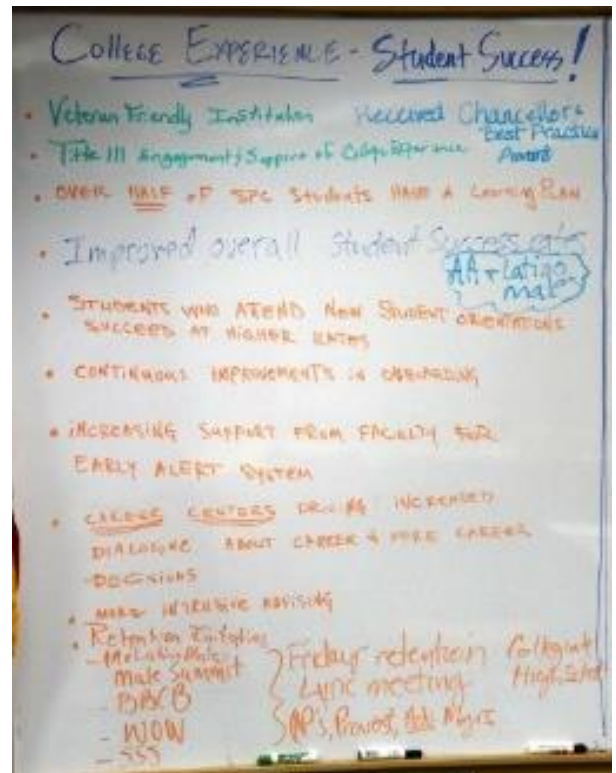 COLLEGE EXPERIENCE - Student Success!
• Veteran Friendly Institution Received Chancellor's
Best Practice
Award
• Title III Engagement & Support of College Experience
• OVER HALF OF SPC Students HAVE A Learning PLAN
• Improved overall Student Success rates
AA + Latino
male
• STUDENTS WHO ATEND NEW STUDENT ORIENTATIONS
SUCCEED AT HIGHER RATES
• CONTINUOUS IMPROVEMENTS IN ONBOARDING
• INCREASING SUPPORT FROM FACULTY FOR
EARLY ALERT SYSTEM
• CAREER CENTERS DRIVING INCREASED
DIALOGUE ABOUT CAREER & MORE CAREER
DECISIONS
• MORE INTRUSIVE ADVISING
• Retention
Male Summit
- BBCB
- WOW
- SSS
Friday retention
Lync meeting
APS, Provost,
Collegiate
High School